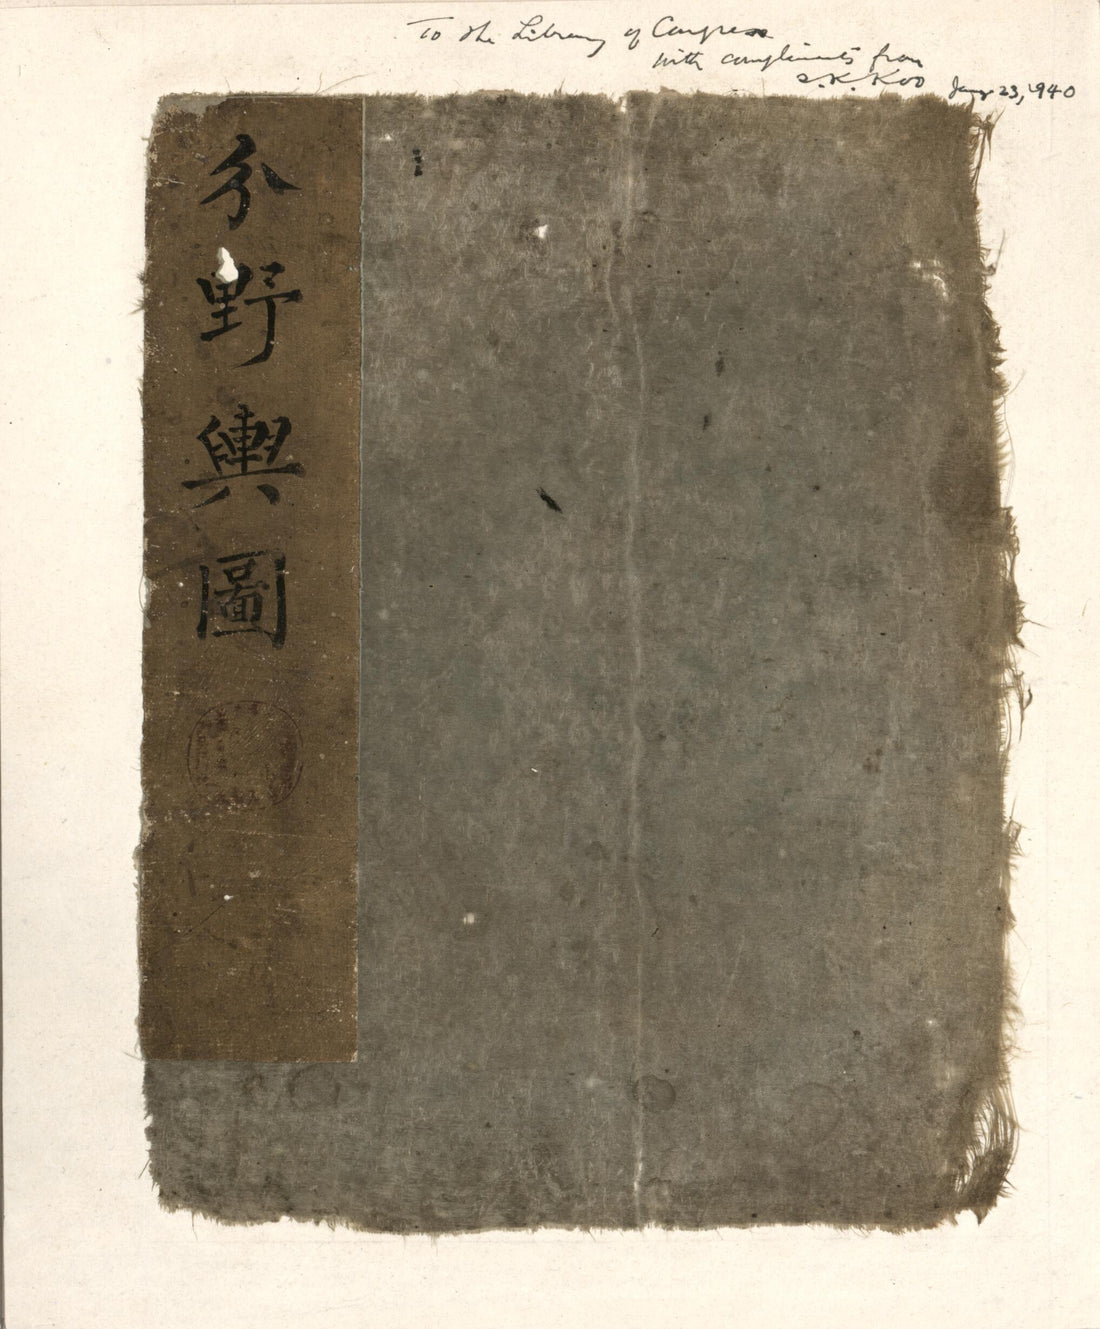 To the Library of Congress
with compliments from
S. K. Koo Jany 23, 1940
分野輿圖